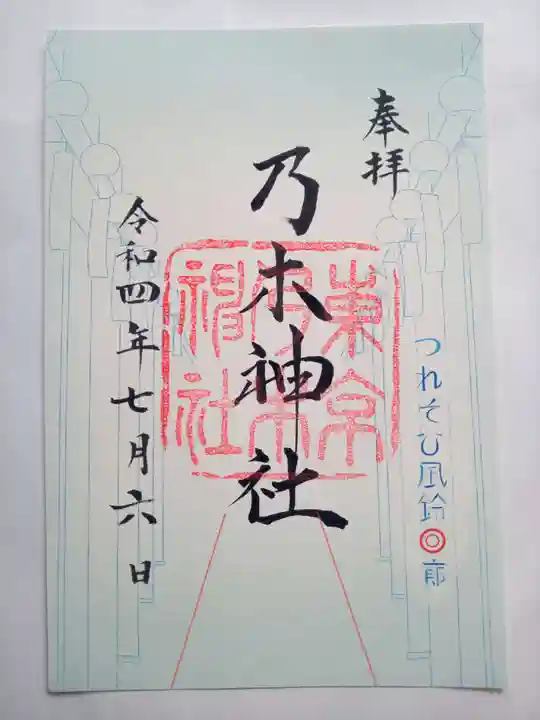 奉拝
つれそひ風鈴◎廊
乃木神社
東京
乃木
神社
令和四年七月六日